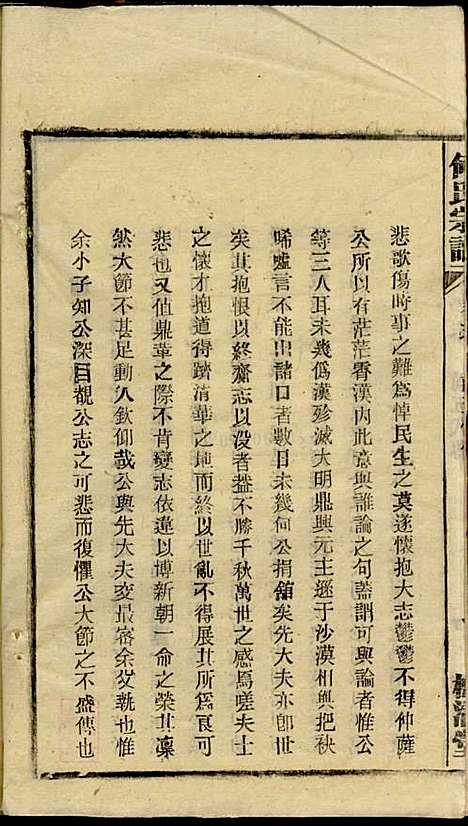 悲歌傷時事之難為悼民生之莫遂懷抱大志鬱鬱不得仲薩
公所以有茫茫香漢內此意與誰論之句蓋謂可與論者惟公
等三八耳未幾偽漢殄滅大明鼎興元主遜于沙漠相與把袂
唏噓言不能出諸口者數日未幾何公捐舘矣先大夫亦卽世
矣其抱恨以終齎志以沒者葢不勝千秋萬世之感焉嗟夫士
之懷才抱道得躋清華之地而終以世亂不得展其所為良可
悲也又值鼎革之際不肯變志依違以博新朝一命之榮其凜
然大節不甚足動人欽仰哉公與先大夫交最密余父執也惟
余小子知公深目覩公志之可悲而復懼公大節之不盛傳也
何氏宗譜